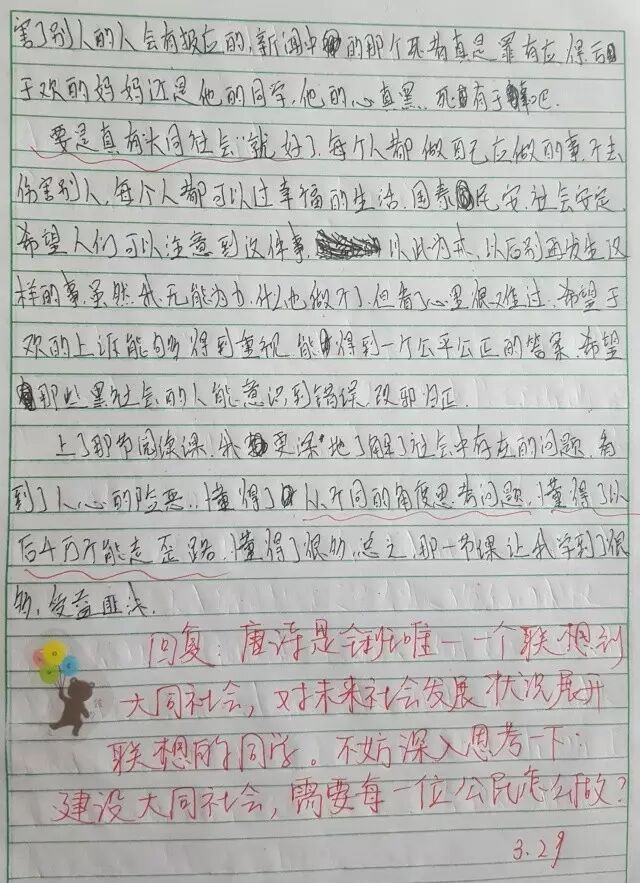 害了别人的人会有报应的，新闻中的那个死者真是罪有应得后
于欢的妈妈还是他的同学，他的心真黑，死有于辜吧.
要是真有"大同社会"就好了，每个人都做自己应做的事，不去
伤害别人，每个人都可以过幸福的生活，国泰民安，社会安定
希望人们可以注意到这件事 以此为戒，以后别再发生这
样的事，虽然我无能为力，什么也做不了，但看了心里很难过，希望于
欢的上诉能够得到重视，能得到一个公平公正的答案，希望
那些黑社会的人能意识到错误，改邪归正.
上了那节阅读课，我更深地了解了社会中存在的问题，看
到了人心的险恶，懂得了从不同的角度思考问题，懂得了以
后千万不能走歪路，懂得了很多，总之，那一节课让我学到了很
多，受益匪浅.
回复：唐诗是全班唯一一个联想到
大同社会，对未来社会发展状况展开
联想的同学。不妨深入思考一下：
建设大同社会，需要每一位公民怎么做？
3.29